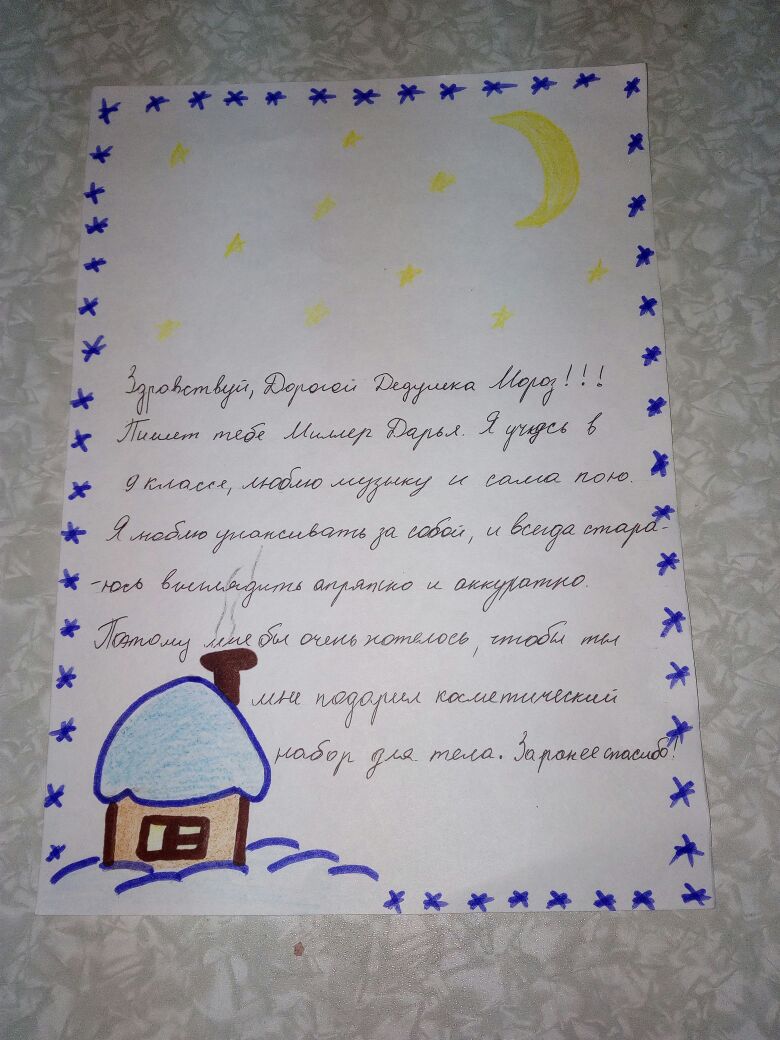 Здравствуй, Дорогой Дедушка Мороз!!!
Пишет тебе Миллер Дарья. Я учусь в
9 классе, люблю музыку и сама пою.
Я люблю ухаживать за собой, и всегда стара-
-юсь выглядить опрятно и аккуратно.
Поэтому мне бы очень хотелось, чтобы ты
мне подарил косметический
набор для тела. Заранее спасибо!